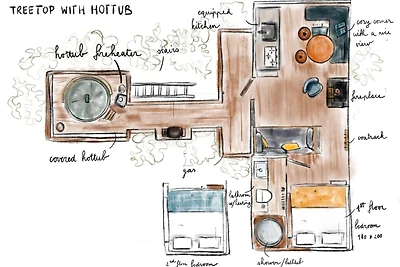 TREETOP WITH HOTTUB
equipped
kitchen
cosy corner
with a nice
view
hottub fireheater
stairs
fireplace
covered hottub
coatrack
gas
bathroom
1st floor
bedroom
180 x 200
2nd floor bedroom
shower/